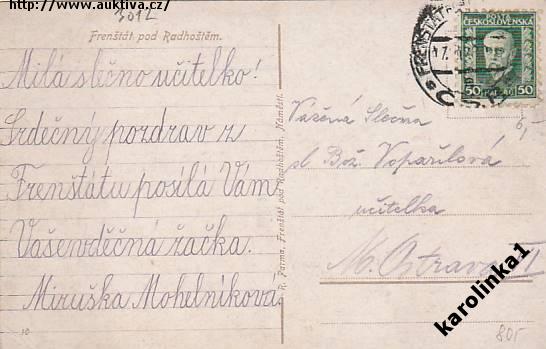 www.auktiva.cz/
3012
Frenštát pod Radhoštěm.
Milá slečno učitelko!
Srdečný pozdrav z
Frenštátu posílá Vám
Vaše vděčná žačka.
Miruška Mohelníkova
10
R. Parma, Frenštát pod Radhoštěm, Náměstí.
FRENŠTÁT
POŠTA
ČESKOSLOVENSKÁ
50 HALÉŘŮ 50
6,-
Vážená Slečna
sl. Bož. Vopařilová
učitelka
M. Ostrava II
karolinka1
801